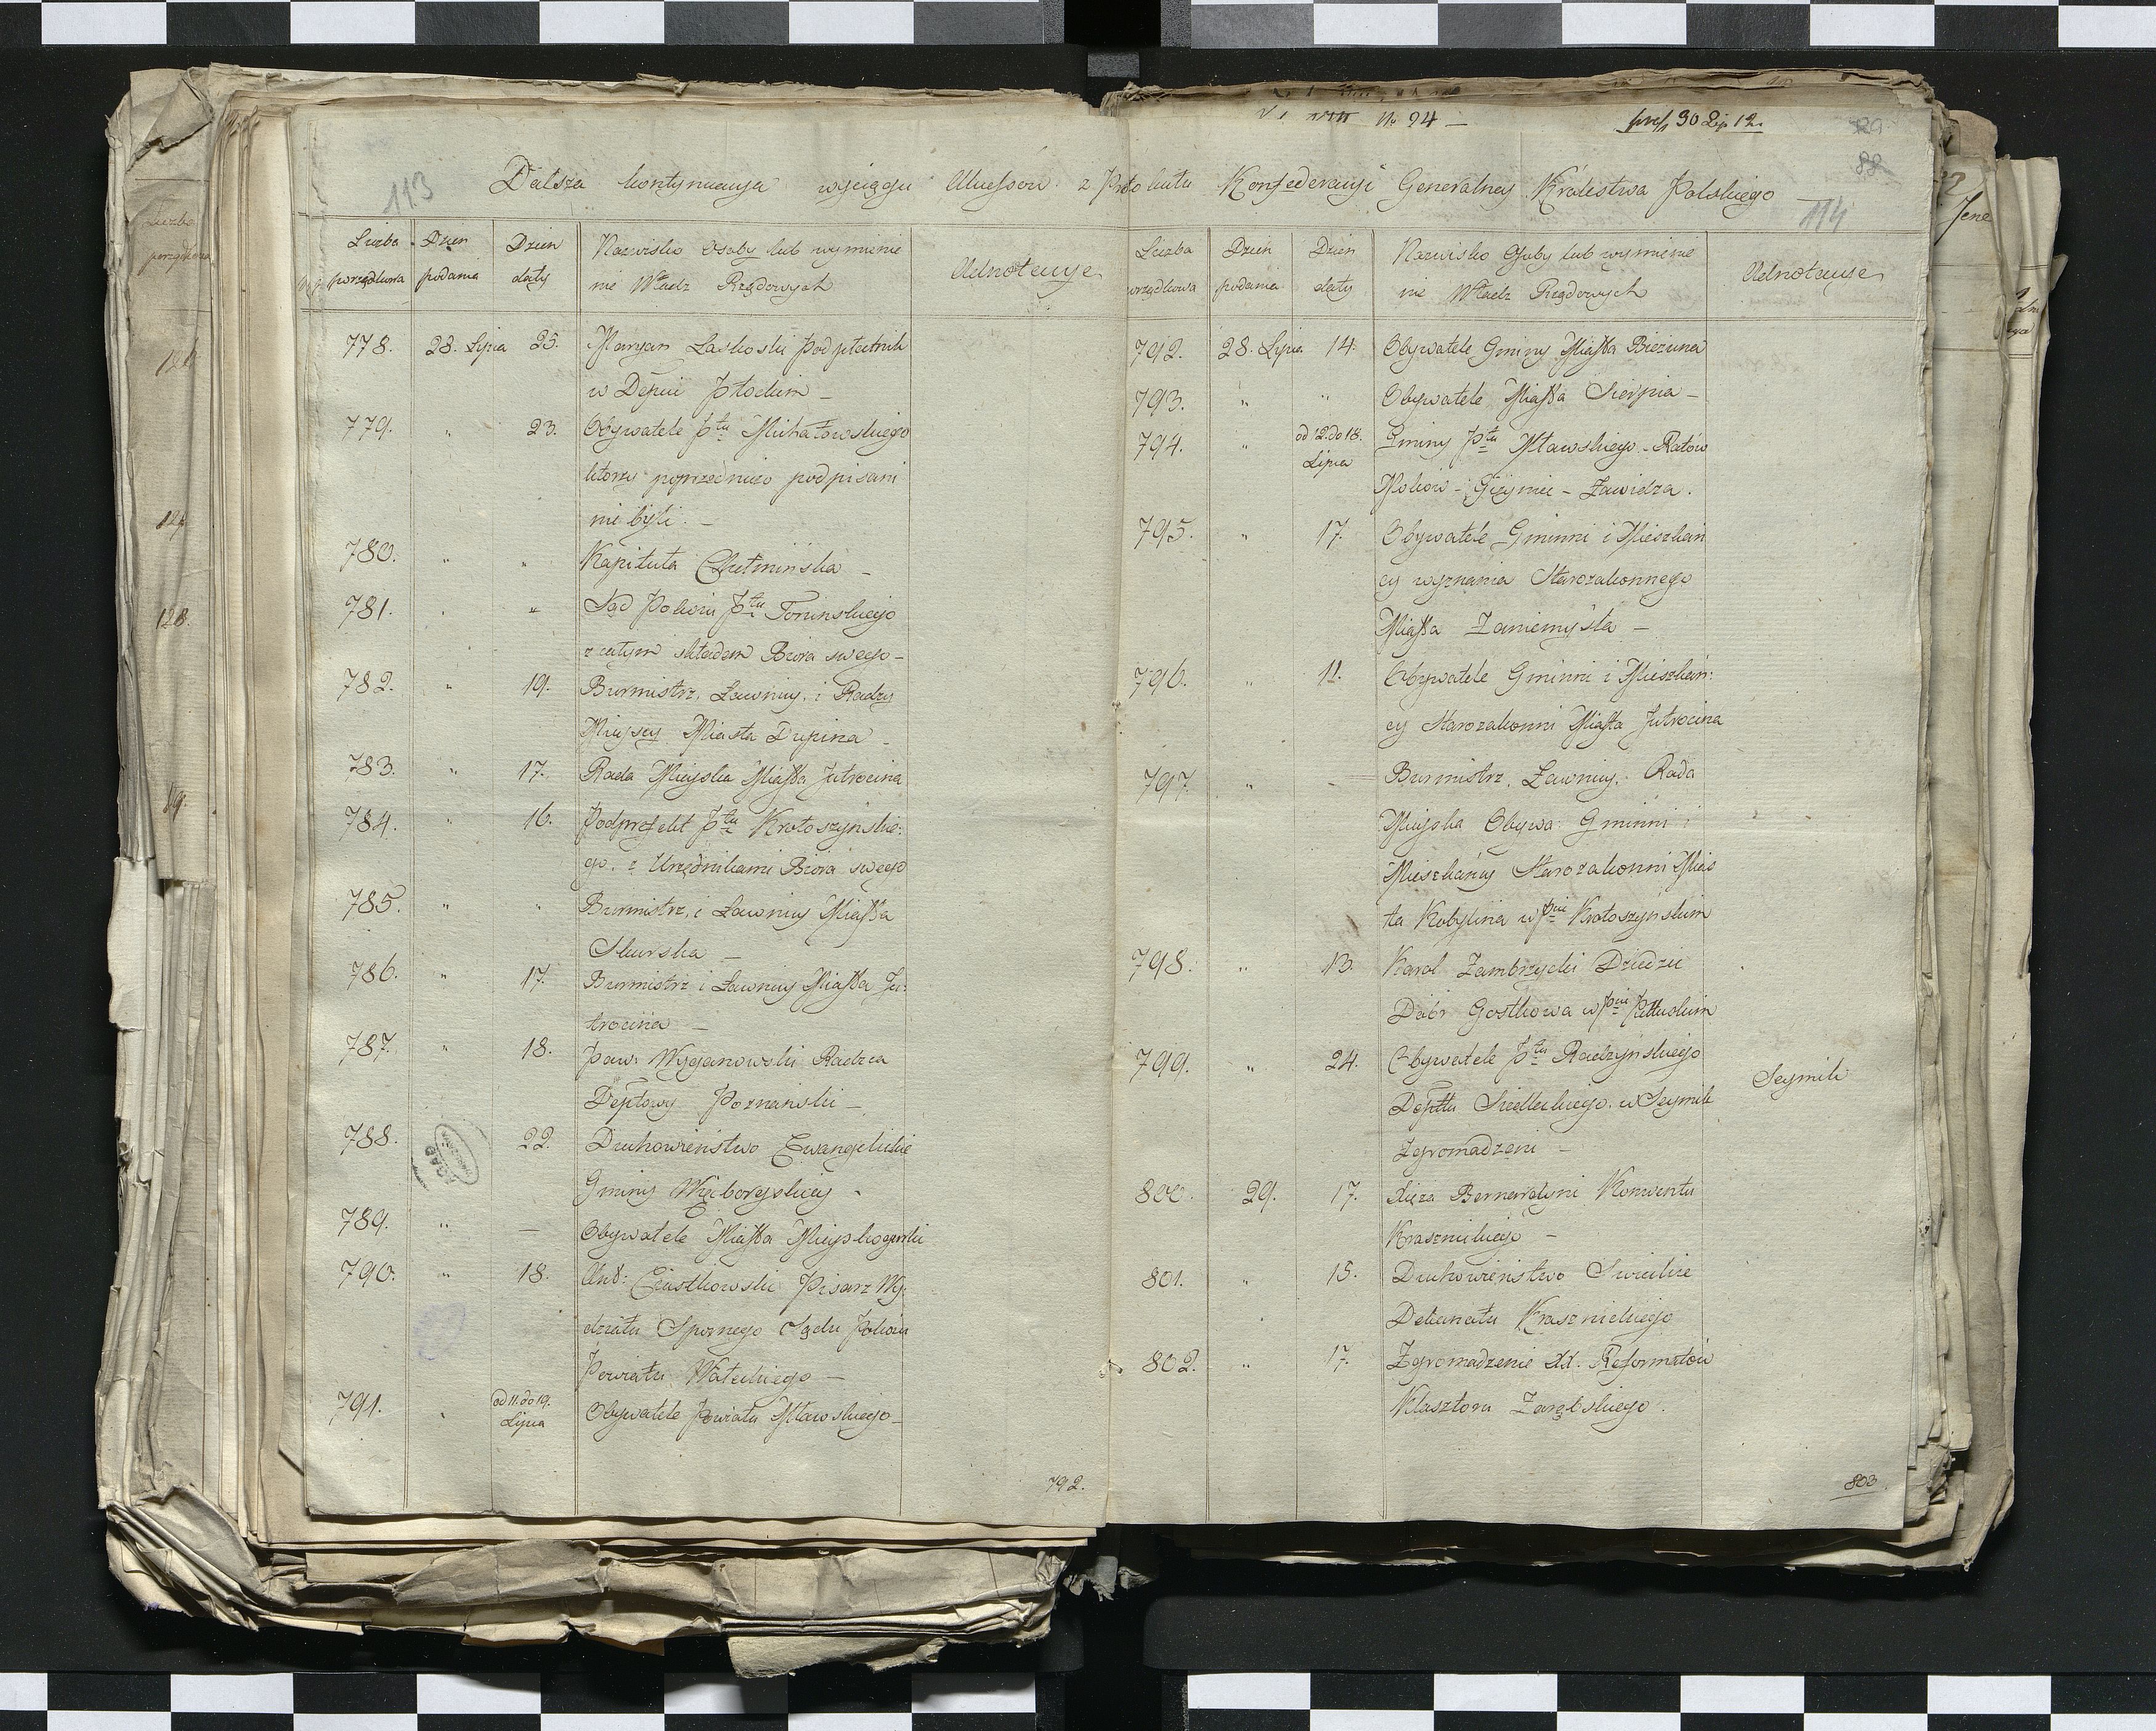 No 94 –
30 Lip 12.
88
113
114
Dalsza kontynuacya wyciągu Akcessów z Protokułu Konfederacyi Generalney Królestwa Polskiego
Liczba porządkowa
Dzień podania
Dzień daty
Nazwisko Osoby lub wymienie
nie Władz Rządowych
Adnotacye
778. 28. Lipca 25. Maryan Laskoski Podpłatnik
w Depcie Płockim –
779. " 23. Obywatele Ptu Michałowskiego
którzy poprzedniczo podpisani
nie byli. –
780. " " Kapituła Chełmińska –
781. " " Sąd Pokoiu Ptu Toruńskiego
z całym składem Biora swego –
782. " 19. Burmistrz, Ławnicy, i Radzcy
Mieyscy Miasta Dupina –
783. " 17. Rada Mieyska Miasta Jutrocina
784. " 16. Podprefekt Ptu Krotoszyńskie:
go. z Urzędnikami Biora swego
785. " " Burmistrz, i Ławnicy Miasta
Skurska –
786. " 17. Burmistrz i Ławnicy Miasta Ju:
trocina –
787. " 18. Paw: Wyganowski Radzca
Deptowy Poznański –
788. 22. Duchowieństwo Ewangelickie
Gminy Więborgskiey
789. " – Obywatele Miasta
790. " 18. And: Czustkowski Pisarz Wy:
działu Spornego Sądu Pokoiu
Powiatu Wałeckiego –
791. " od 11. do 19.
Lipca Obywatele Powiatu Mławskiego –
792.
Liczba porządkowa
Dzień podania
Dzień daty
Nazwisko Osoby lub wymienie
nie Władz Rządowych
Adnotacye
792. 28. Lipca 14. Obywatele Gminy Miasta Bieżuna
793. " " Obywatele Miasta Sierpca –
794. " od 12. do 18.
Lipca Gminy Ptu Mławskiego – Ratów
Mokow – Giżynie – Zawidza.
795. " 17. Obywatele Gminni i Mieszkań
cy wyznania Starozakonnego
Miasta Zaniemyśla –
796. " 11. Obywatele Gminni i Mieszkań:
cy Starozakonni Miasta Jutrocina
797. " – Burmistrz, Ławnicy, Rada
Mieyska Obywa: Gminni i
Mieszkańcy Starozakonni Mias
ta Kobylina w Pcie Krotoszyńskim
798. " 13. Karol Zambrzycki Dziedzic
Dóbr Gostkowa w Pcie Pułtuskim
799. " 24. Obywatele Ptu Radzyńskiego
Deptu Siedleckiego. w Seymik
Zgromadzeni –
Seymik
800. 29. 17. Xięża Bernardyni Konwentu
Kraśnickiego –
801. " 15. Duchowieństwo Swieckie
Dekanatu Kraśnickiego
802. " 17. Zgromadzenie XX. Reformatów
Klasztoru Zarębskiego.
803